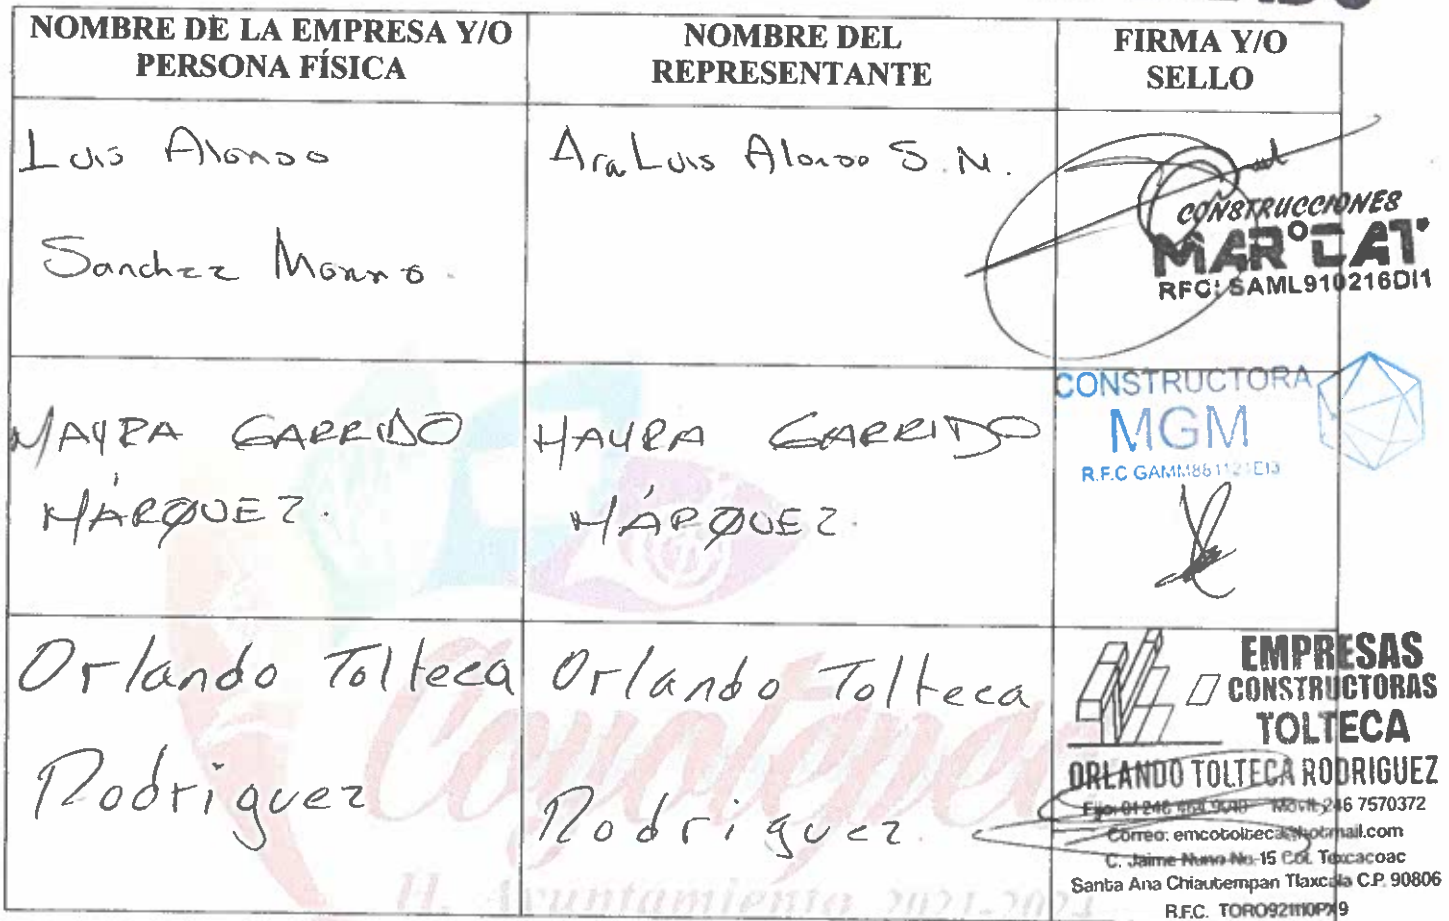 NOMBRE DE LA EMPRESA Y/O
PERSONA FÍSICA
NOMBRE DEL
REPRESENTANTE
FIRMA Y/O
SELLO
Luis Alonso
Sanchez
Luis Alonso S. M.
CONSTRUCCIONES
MAR°CAT
RFC: SAML910216DI1
MAYRA GARRIDO
MÁRQUEZ.
MAYRA GARRIDO
MÁRQUEZ.
CONSTRUCTORA
MGM
R.F.C GAMM861121EI3
Orlando Tolteca
Rodriguez
Orlando Tolteca
Rodriguez.
EMPRESAS
CONSTRUCTORAS
TOLTECA
ORLANDO TOLTECA RODRIGUEZ
Fijo: 01 246 Movil: 246 7570372
Correo: emcotolteca@hotmail.com
C. Jaime Nuno No. 15 Col. Texcacoac
Santa Ana Chiautempan Tlaxcala C.P. 90806
R.F.C. TORO921110PX9
H. Ayuntamiento 2021-2024